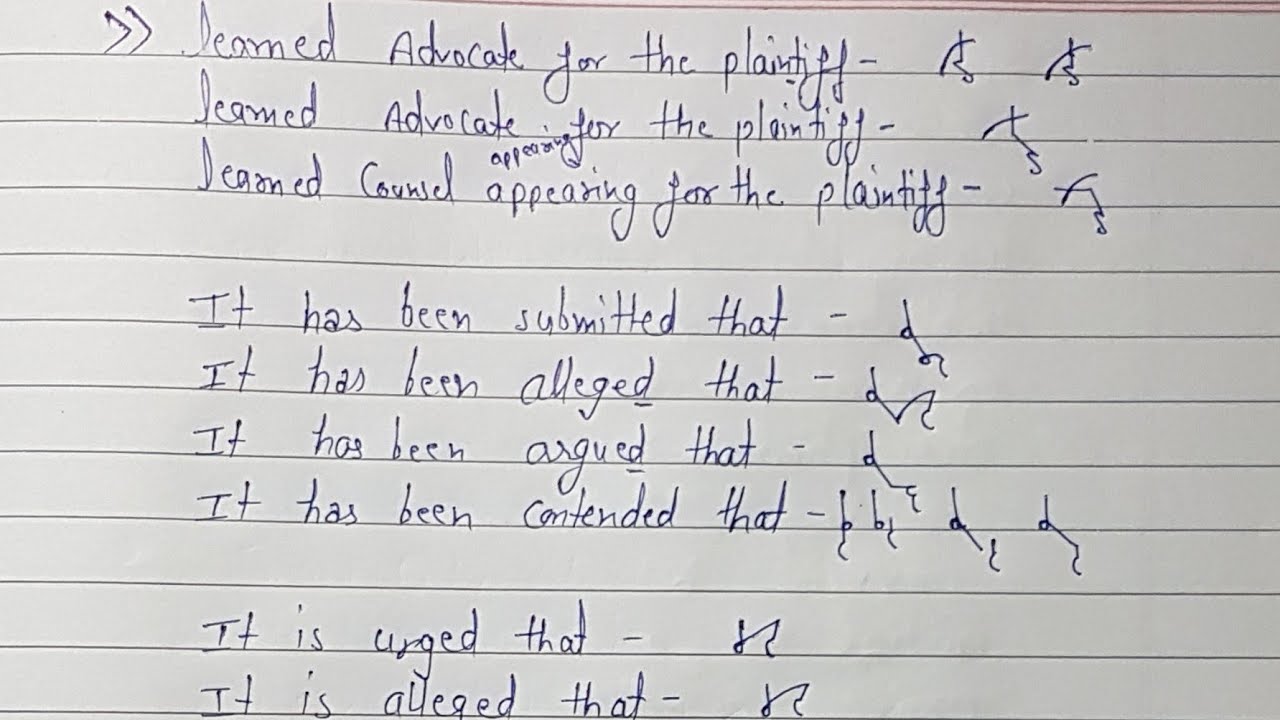 >> Learned Advocate for the plaintiff -
Learned Advocate appearing for the plaintiff -
Learned Counsel appearing for the plaintiff -
It has been submitted that -
It has been alleged that -
It has been argued that -
It has been contended that -
It is urged that -
It is alleged that -